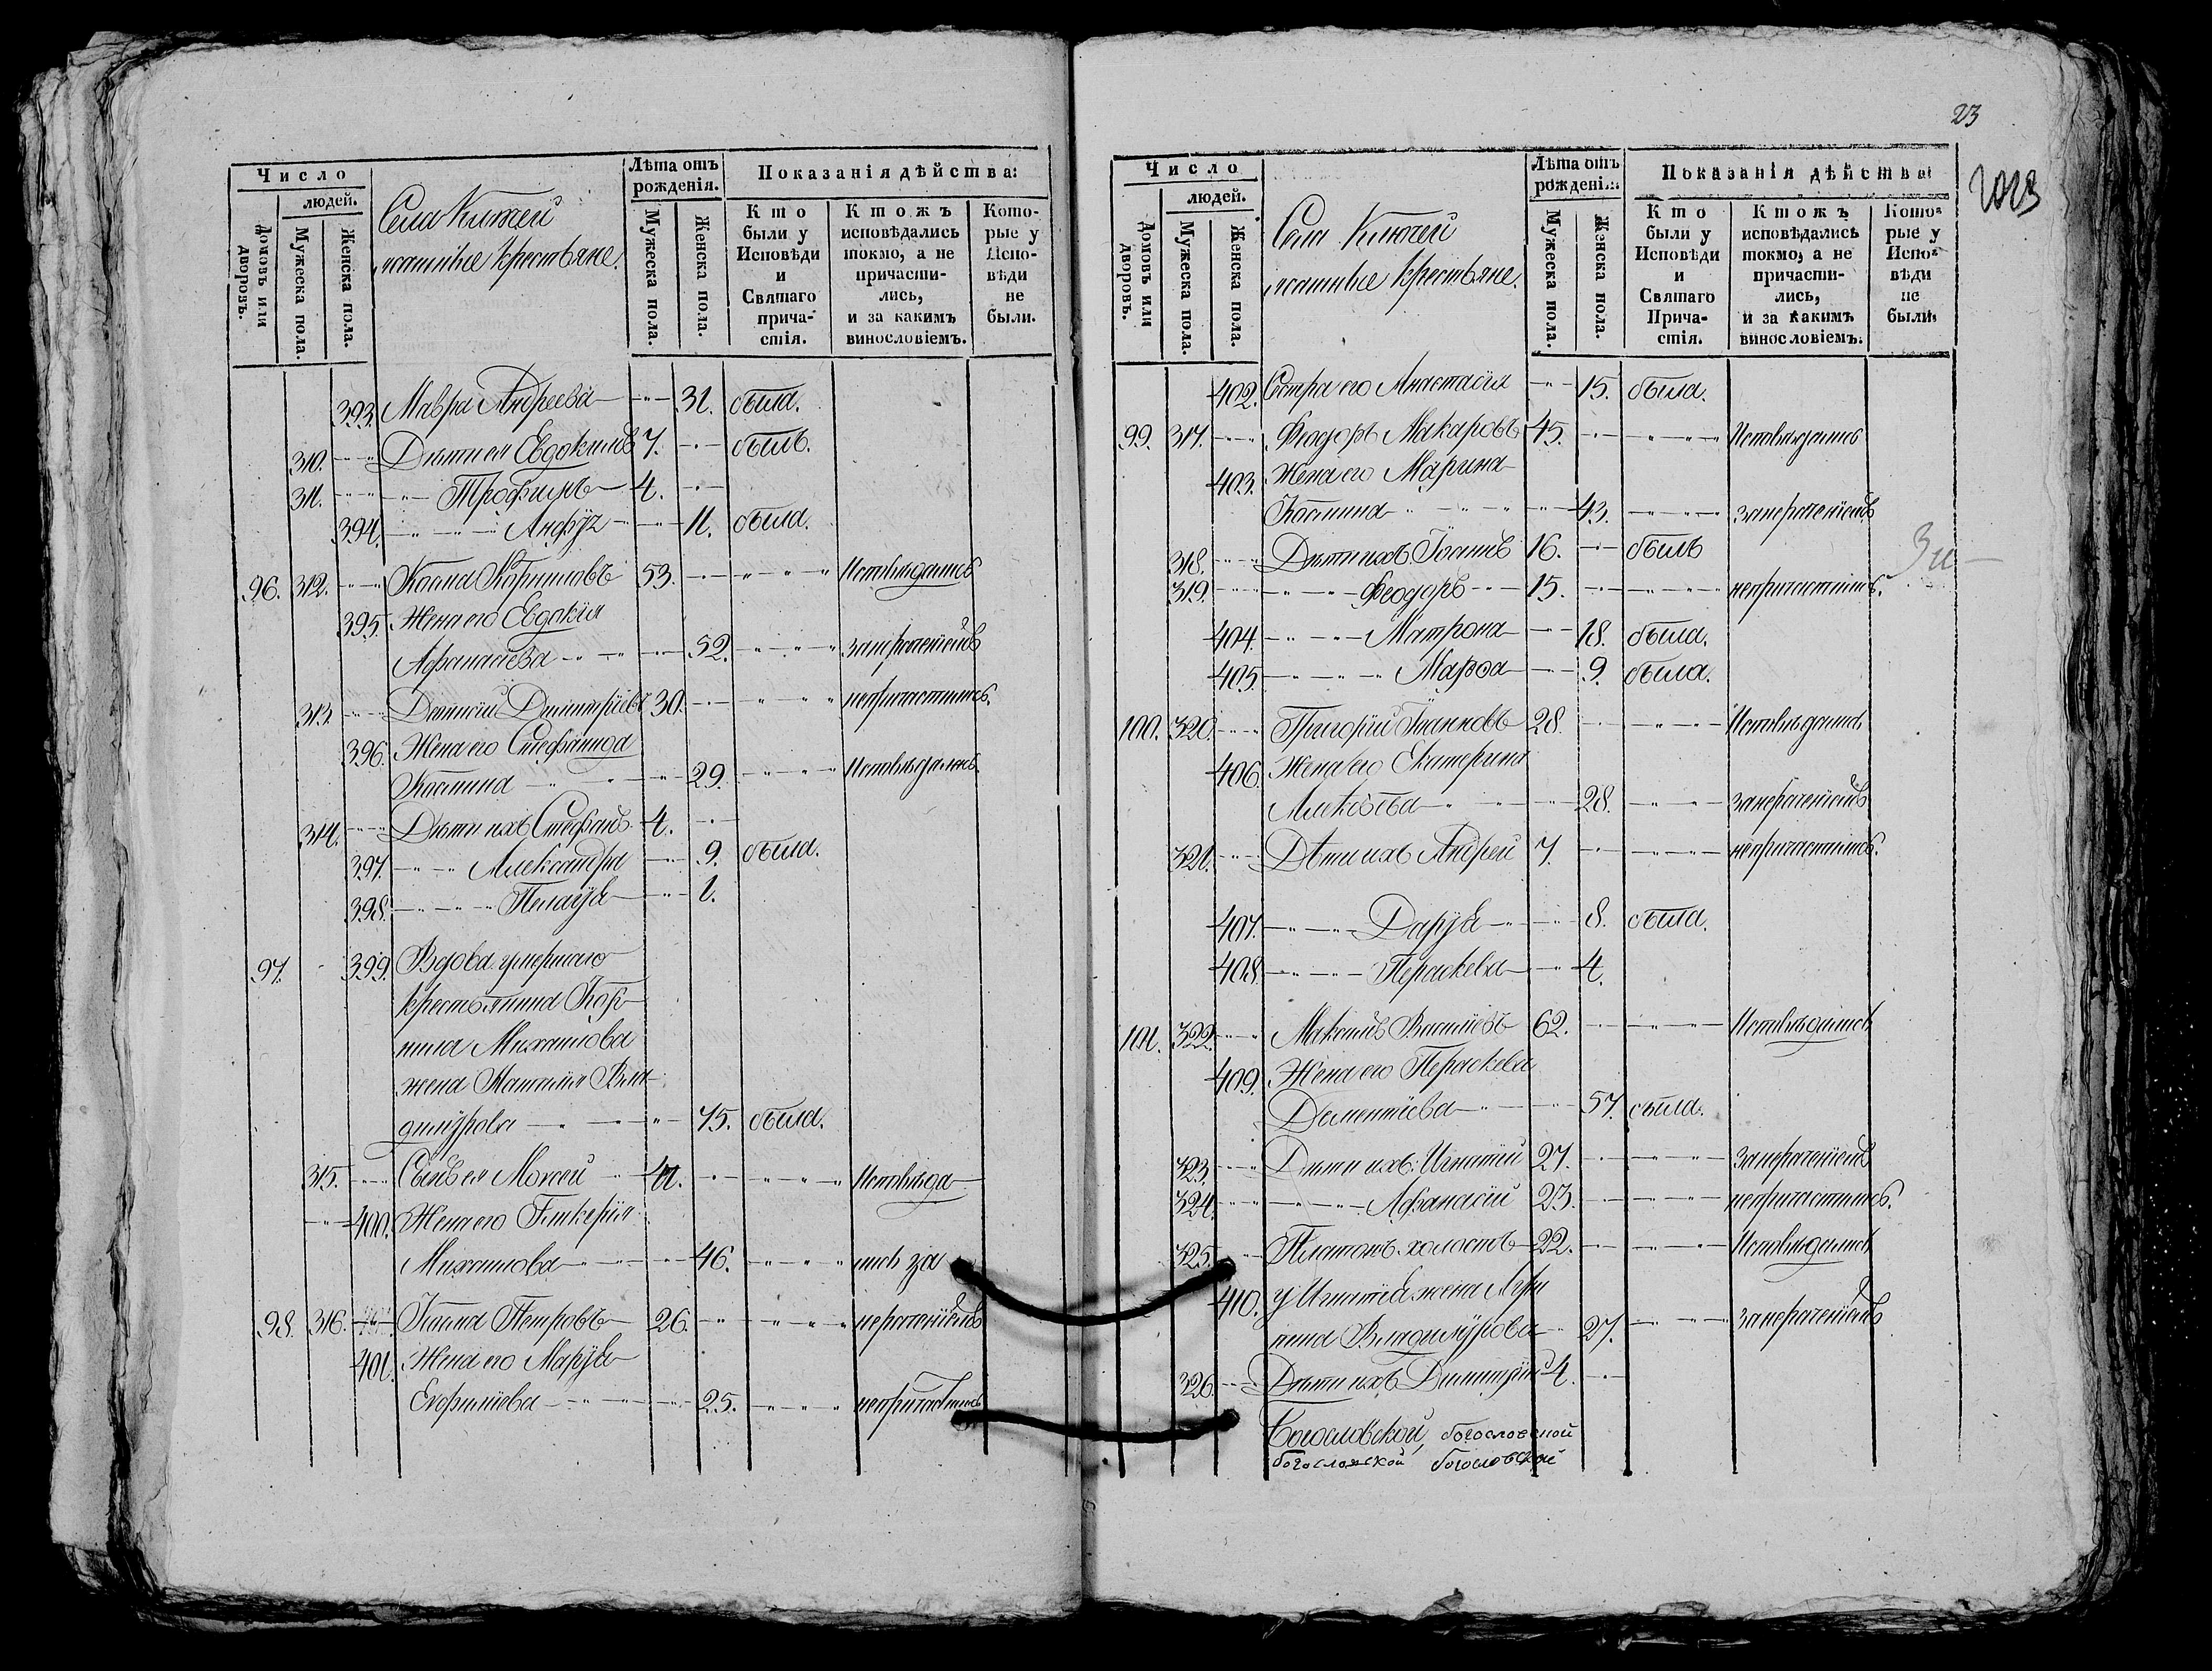 Число
людей.
Домовъ или дворовъ.
Мужеска пола.
Женска пола.
Села Ключей
ясашные крестьяне.
Лѣта отъ рожденія.
Мужеска пола.
Женска пола.
Показанія дѣйства:
Кто были у Исповѣди и Святаго причастія.
Ктожъ исповѣдались токмо, а не причастились, и за какимъ винословіемъ.
Которые у Исповѣди не были.
393. Мавра Андреева 31. была.
310. Дѣти ея Евдокимъ 7. былъ.
311. Трофимъ 4.
394. 11. была.
96. 312. Косма Корниловъ 53. Исповѣдались
395. Жена его Евдокія
Афанасіева 52. занераченіемъ
313. Дмитріевъ 30. непричастились.
396. Жена его Стефанида
Космина 29. Исповѣдались
314. Дѣти ихъ Стефанъ 4.
397. Александра 9. была.
398. Пелагія 1.
97. 399. Вдова умершаго
крестьянина Кор-
нила Михайлова
жена Наталія Вла-
димірова 75. была.
315. Сынъ ея Моисей 41. Исповѣда-
400. Жена его Гликерія
Михайлова 46. лись за
98. 316. Косма Петровъ 26. нераченіемъ
401. Жена его Марія
Евфиміева 25. непричастились
23
1023
Число
людей.
Домовъ или дворовъ.
Мужеска пола.
Женска пола.
Села Ключей
ясашные крестьяне.
Лѣта отъ рожденія.
Мужеска пола.
Женска пола.
Показанія дѣйства:
Кто были у Исповѣди и Святаго Причастія.
Ктожъ исповѣдались токмо, а не причастились, и за какимъ винословіемъ.
Которые у Исповѣди не были.
402. Сестра его Анастасія 15. была.
99. 317. Феодоръ Макаровъ 45. Исповѣдались
403. Жена его Марина
Космина 43. занераченіемъ
318. Дѣти ихъ Іоаннъ 16. былъ
319. Феодоръ 15. непричастились.
404. Матрона 18. была.
405. Марѳа 9. была.
100. 320. Григорій Іоанновъ 28. Исповѣдались
406. Жена его Екатерина
28. занераченіемъ
321. Дѣти ихъ Андрей 7. непричастились.
407. Дарія 8. была.
408. Пераскева 4.
101. 322. Максимъ Василіевъ 62. Исповѣдались
409. Жена его Пераскева
Дементіева 57. была.
323. Дѣти ихъ: Игнатій 27. занераченіемъ
324. Афанасій 23. непричастились.
325. Платонъ холостъ 22. Исповѣдались
410. у Игнатія жена Ири-
Владимірова 27. занераченіемъ
326. Дѣти ихъ Димитрій 4.
Богословской, богословской
богословской богословской